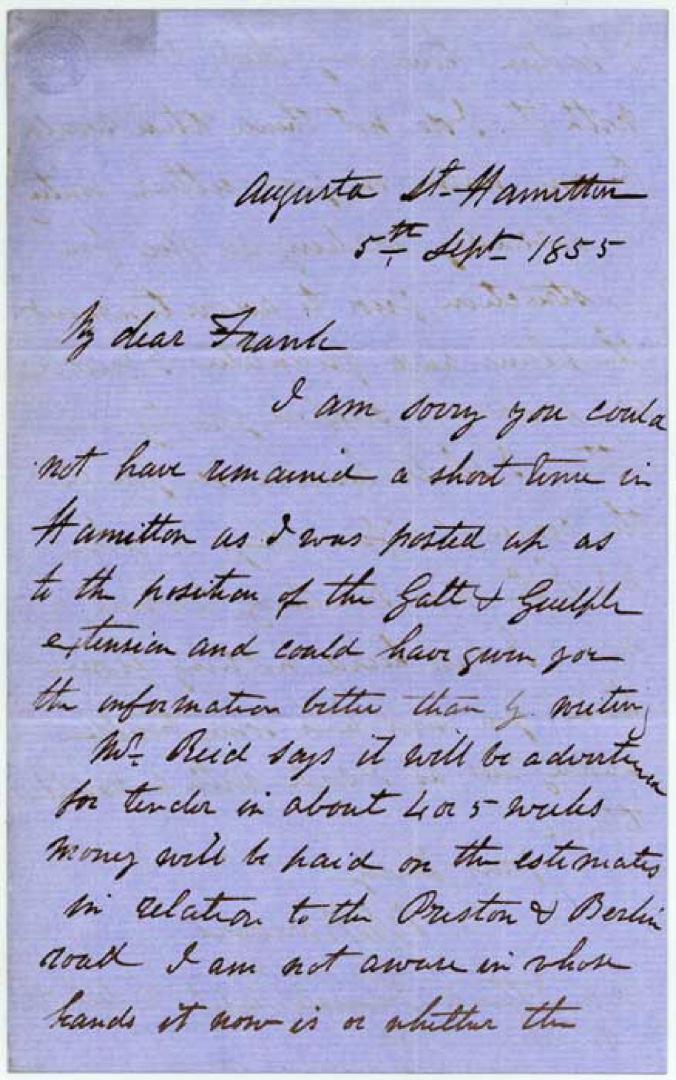 Augusta St. Hamilton
5th Sept 1855
My dear Frank
I am sorry you could
not have remained a short time in
Hamilton as I was posted up as
to the position of the Galt & Guelph
extension and could have given you
the information better than by writing
Mr. Reid says it will be advertised
for tender in about 4 or 5 weeks
money will be paid on the estimates
in relation to the Preston & Berlin
road I am not aware in whose
hands it now is or whether the